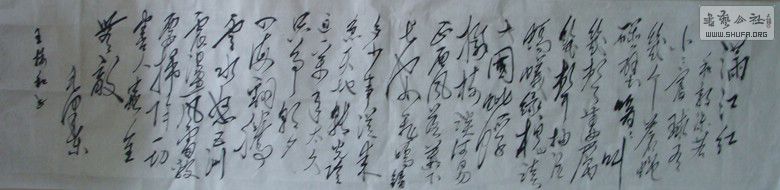 满江红
和郭沫若
小小寰球有
几个苍蝇
碰壁嗡嗡叫
几声凄厉
几声抽泣
蚂蚁缘槐夸
大国蚍蜉
撼树谈何易
正西风落叶下
长安飞鸣镝
多少事从来
急天地转光阴
迫一万年太久
只争朝夕
四海翻腾
云水怒五洲
震荡风雷激
要扫除一切
害人虫全
无敌
毛泽东
WWW.SHUFA.ORG